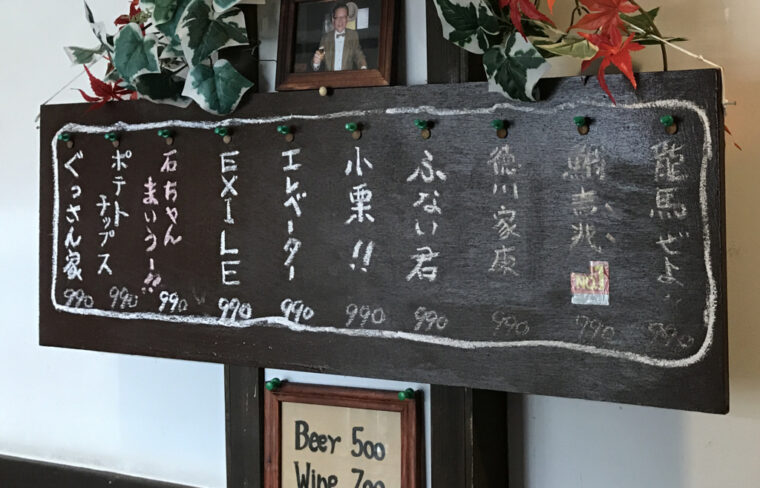 龍馬ぜよ、
990
NO.1
990
徳川家康
990
ふない君
990
小栗!!
990
エレベーター
990
EXILE
990
石ちゃん
まいうー!!
990
ポテト
チップス
990
ぐっさん家
990
Beer 500
Wine 700